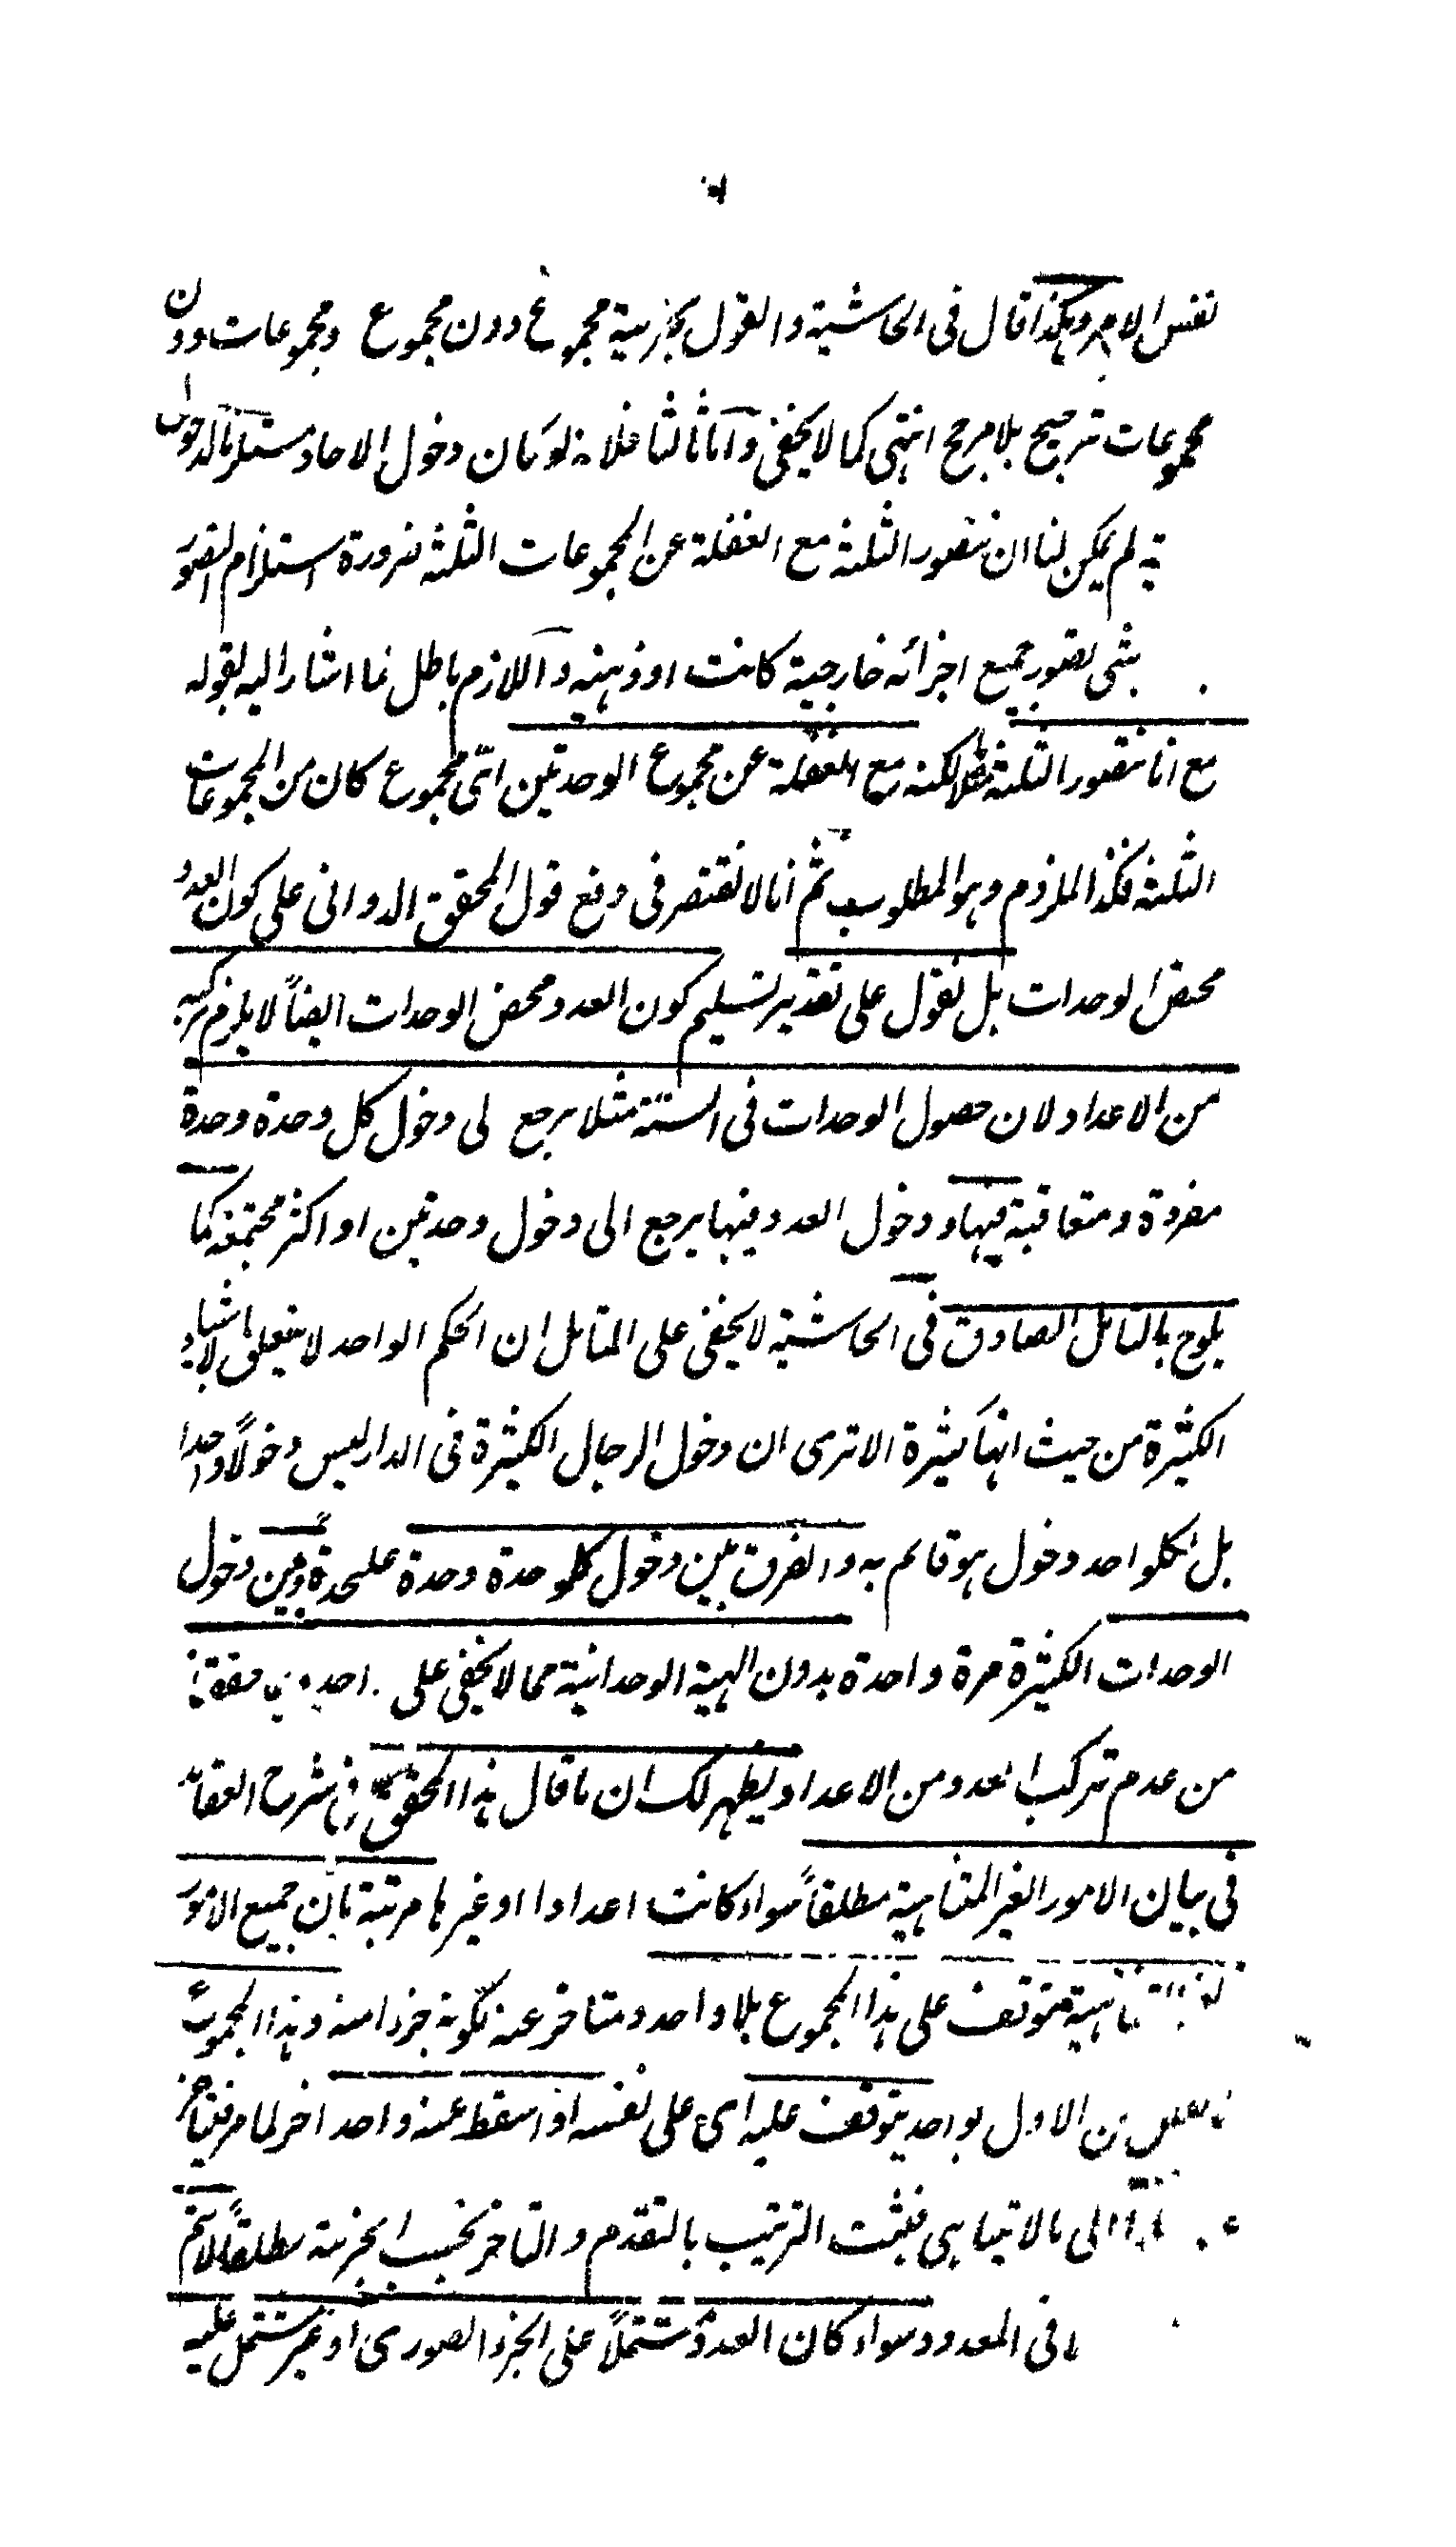 نفس الامر وهكذا قال فى الحاشية والقول بجزئية مجموع دون مجموع ومجموعات دون
مجموعات ترجيح بلا مرجح انتهى كما لا يخفى واما ثالثا فلانه لو كان دخول الاحاد مستلزما لدخول
لم يمكن لنا ان نتصور الثلثة مع الغفلة عن المجموعات الثلثة ضرورة استلزام تصور
شى تصور جميع اجزائه خارجية كانت او ذهنية واللازم باطل لما اشار اليه بقوله
مع انا نتصور الثلثة بالكنه مع الغفلة عن مجموع الوحدتين اىّ مجموع كان من المجموعات
الثلثة فكذا الملزوم وهو المطلوب ثم انا لا نقتصر فى دفع قول المحقق الدوانى على كون العدد
محض الوحدات بل نقول على تقدير تسليم كون العدد محض الوحدات ايضاً لا يلزم تركبه
من الاعداد لان حصول الوحدات فى الستة مثلا يرجع لى دخول كل وحدة وحدة
مفردة ومتعاقبة فيها ودخول العدد فيها يرجع الى دخول وحدتين او اكثر مجتمعة كما
يلوح بالتامل الصادق فى الحاشية لا يخفى على المتامل ان الحكم الواحد لا يتعلق بالاشياء
الكثيرة من حيث انها كثيرة الا ترى ان دخول الرجال الكثيرة فى الدار ليس دخولاً واحدا
بل لكلواحد دخول هو قائم به والفرق بين دخول كلوحدة وحدة عليحدة وبين دخول
الوحدات الكثيرة مرة واحدة بدون الهيئة الوحدانية مما لا يخفى على احد
من عدم تركب العدد من الاعداد يظهر لك ان ما قال هذا المحقق فى شرح العقائد
فى بيان الامور الغير المتناهية مطلقاً سواء كانت اعدادا او غيرها مرتبة بان جميع الامور
الغير المتناهية متوقف على هذا المجموع بلا واحد ومتاخر عنه لكونه جزءا منه وهذا المجموع
الاول بواحد يتوقف عليه اى على نفسه اذا سقط عنه واحد اخر لما مر فيتاخر
الى ما لا يتناهى فيثبت الترتيب بالتقدم والتاخر بحسب الجزئية مطلقاً لا يتم
فى المعدود سواء كان العدد مشتملاً على الجزء الصورى او غير مشتمل عليه